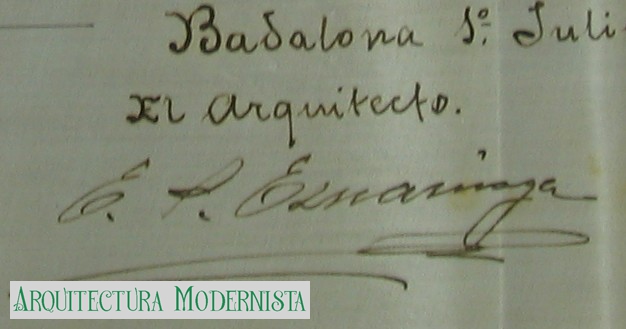 Badalona 1º Juli
El Arquitecto.
E. P.
ARQUITECTURA MODERNISTA